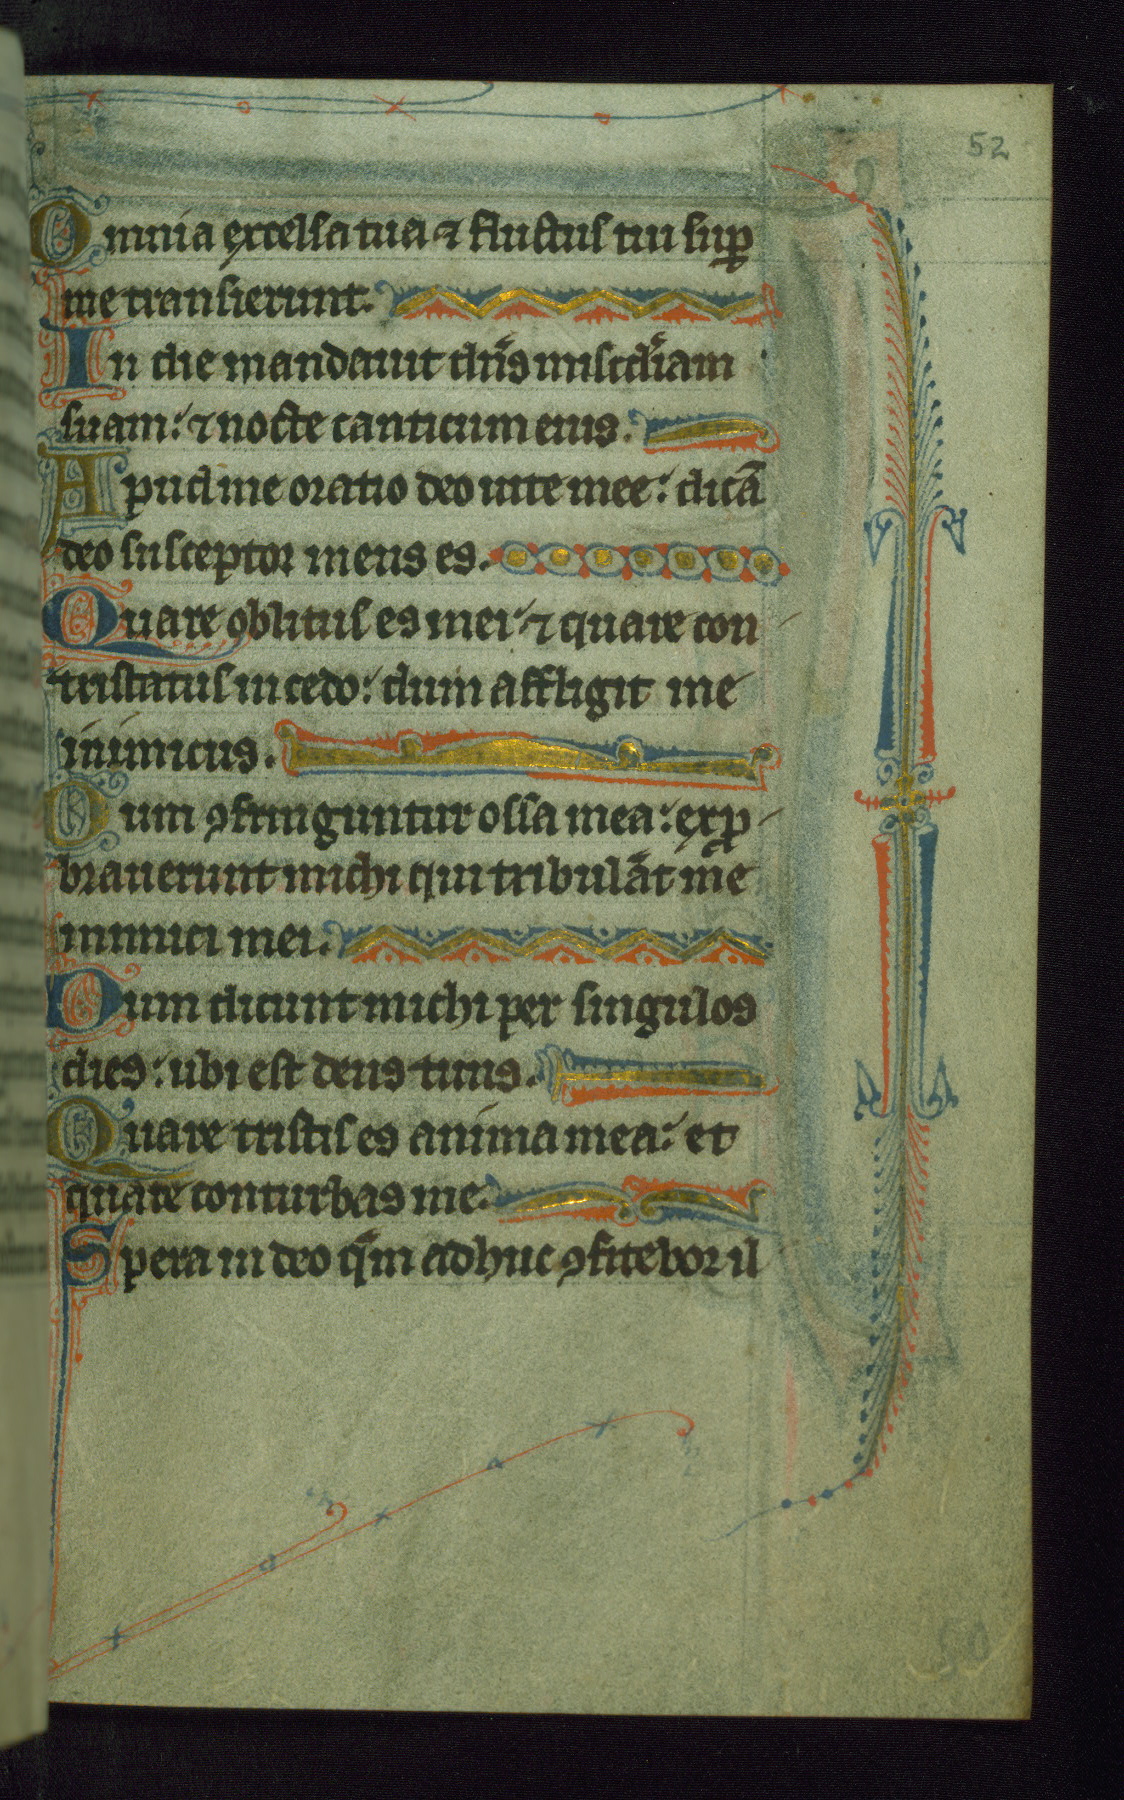 52
Omnia excelsa tua ⁊ fluctus tui sup̱
me transierunt.
In die mandauit dn̄s misc̄diam
suam: ⁊ nocte canticum eius.
Apud me oratio deo uite mee: dicā
deo susceptor meus es.
Quare oblitus es mei ⁊ quare con
tristatus incedo: dum affligit me
inimicus.
Cum ꝯfringuntur ossa mea: exꝓ
brauerunt michi qui tribulāt me
inimici mei.
Dum dicunt michi per singulos
dies: ubi est deus tuus.
Quare tristis es anima mea: et
quare conturbas me.
Spera in deo qm̄ adhuc ꝯfitebor il
50